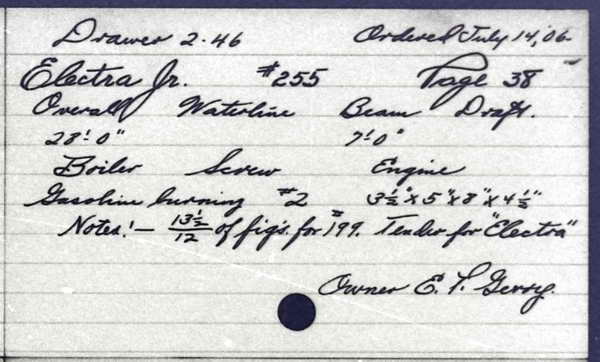 Drawer 2-46 Ordered July 14, '06-
Electra Jr. #255 Page 38
Overall Waterline Beam Draft.
23'-0" 7'-0"
Boiler Screw Engine
Gasoline burning #2 3½" x 5" x 8" x 4½"
Notes:- 13½/12 of fig's. for #199. Tender for "Electra"
Owner E. T. Gerry.